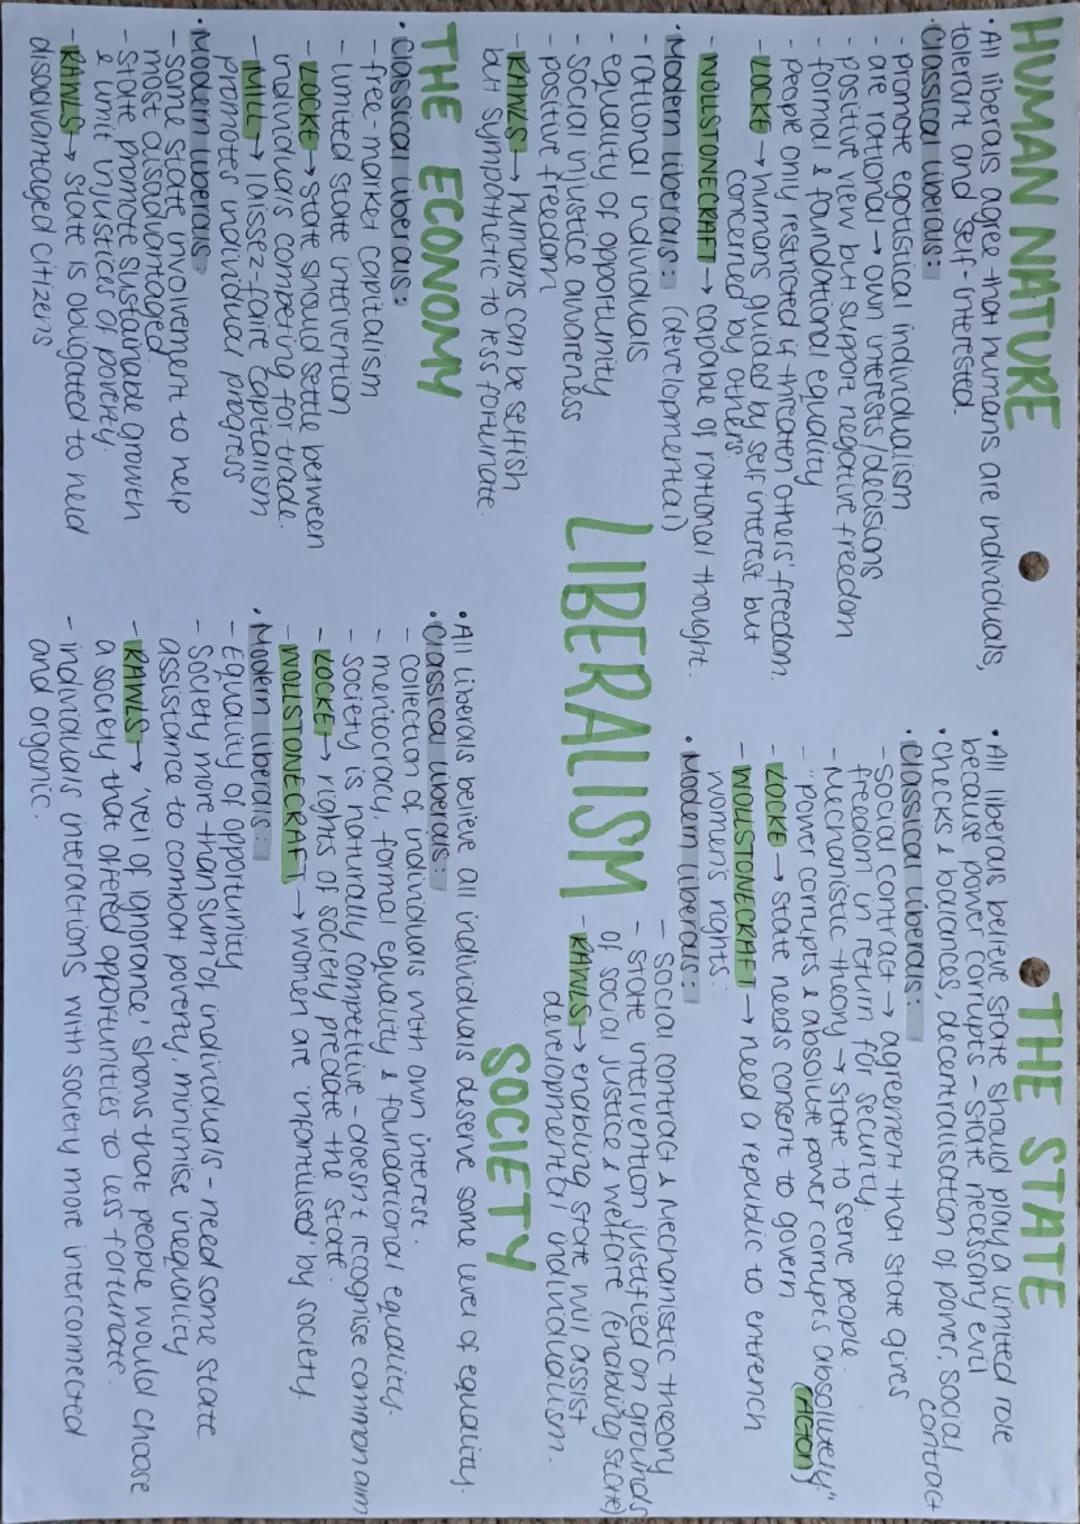 HUMAN NATURE
• All liberals agree that humans are individuals,
tolerant and self-interested.
• Classical liberals:
- promote egotistical individualism
- are rational → own interests/decisions
- positive view but support negative freedom
- formal & foundational equality
- people only restricted if threaten others' freedom.
- LOCKE → humans guided by self interest but
concerned by others.
- WOLLSTONECRAFT → capable of rational thought.
• Modern liberals: (developmental)
- rational individuals
- equality of opportunity
- social injustice awareness
- positive freedom
- RAWLS → humans can be selfish
but sympathetic to less fortunate.
THE ECONOMY
• Classical liberals:
- free-market capitalism
- limited state intervention
- LOCKE → state should settle between
individuals competing for trade.
- MILL → laissez-faire capitalism
promotes individual progress
• Modern liberals
- some state involvement to help
most disadvantaged.
- state promote sustainable growth
& limit injustices of poverty.
- RAWLS → state is obligated to need
disadvantaged citizens
LIBERALISM
• THE STATE
• All liberals believe state should play a limited role
because power corrupts - state necessary evil
• checks & balances, decentralisation of power, social
contract
• Classical liberals:
- Social contract → agreement that state gives
freedom in return for security.
- Mechanistic theory → state to serve people.
- "power corrupts & absolute power corrupts absolutely"
(ACTON)
- LOCKE → state needs consent to govern
- WOLLSTONECRAFT → need a republic to entrench
women's rights.
• Modern liberals:
- Social contract & Mechanistic theory
- state intervention justified on grounds
of social justice & welfare (enabling state)
- RAWLS → enabling state will assist
developmental individualism.
SOCIETY
• All liberals believe all individuals deserve some level of equality.
• Classical liberals:
- collection of individuals with own interest.
- meritocracy, formal equality & foundational equality.
- society is naturally competitive - doesn't recognise common aim
- LOCKE → rights of society predate the state.
- WOLLSTONECRAFT → women are 'infantilised' by society.
• Modern liberals:
- Equality of opportunity
- Society more than sum of individuals - need some state
assistance to combat poverty, minimise inequality
- RAWLS → 'veil of ignorance' shows that people would choose
a society that offered opportunities to less fortunate.
- individuals interactions with society more interconnected
and organic.